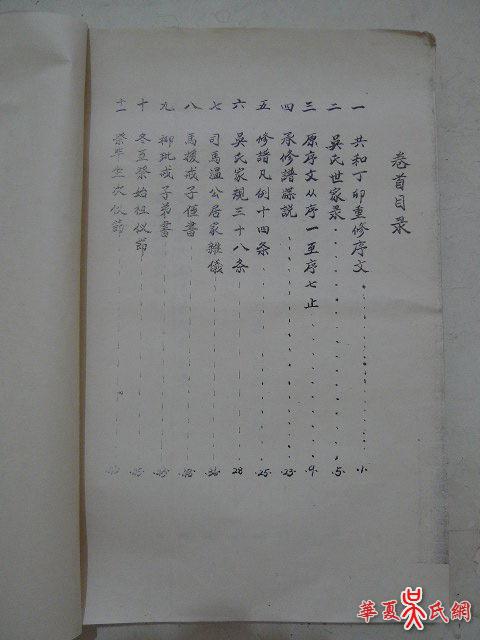 卷首目录
一 共和丁卯重修序文 1
二 吴氏世家录 5
三 原序文从序一至序七止 9
四 承修谱谍説 23
五 修谱凡例十四条 25
六 吴氏家规三十八条 28
七 司马温公居家雜儀
八 馬援戒子侄書
九 柳玭戒子弟書
十 冬至祭始祖仪節
十一 祭毕坐次仪節
華夏吴氏網